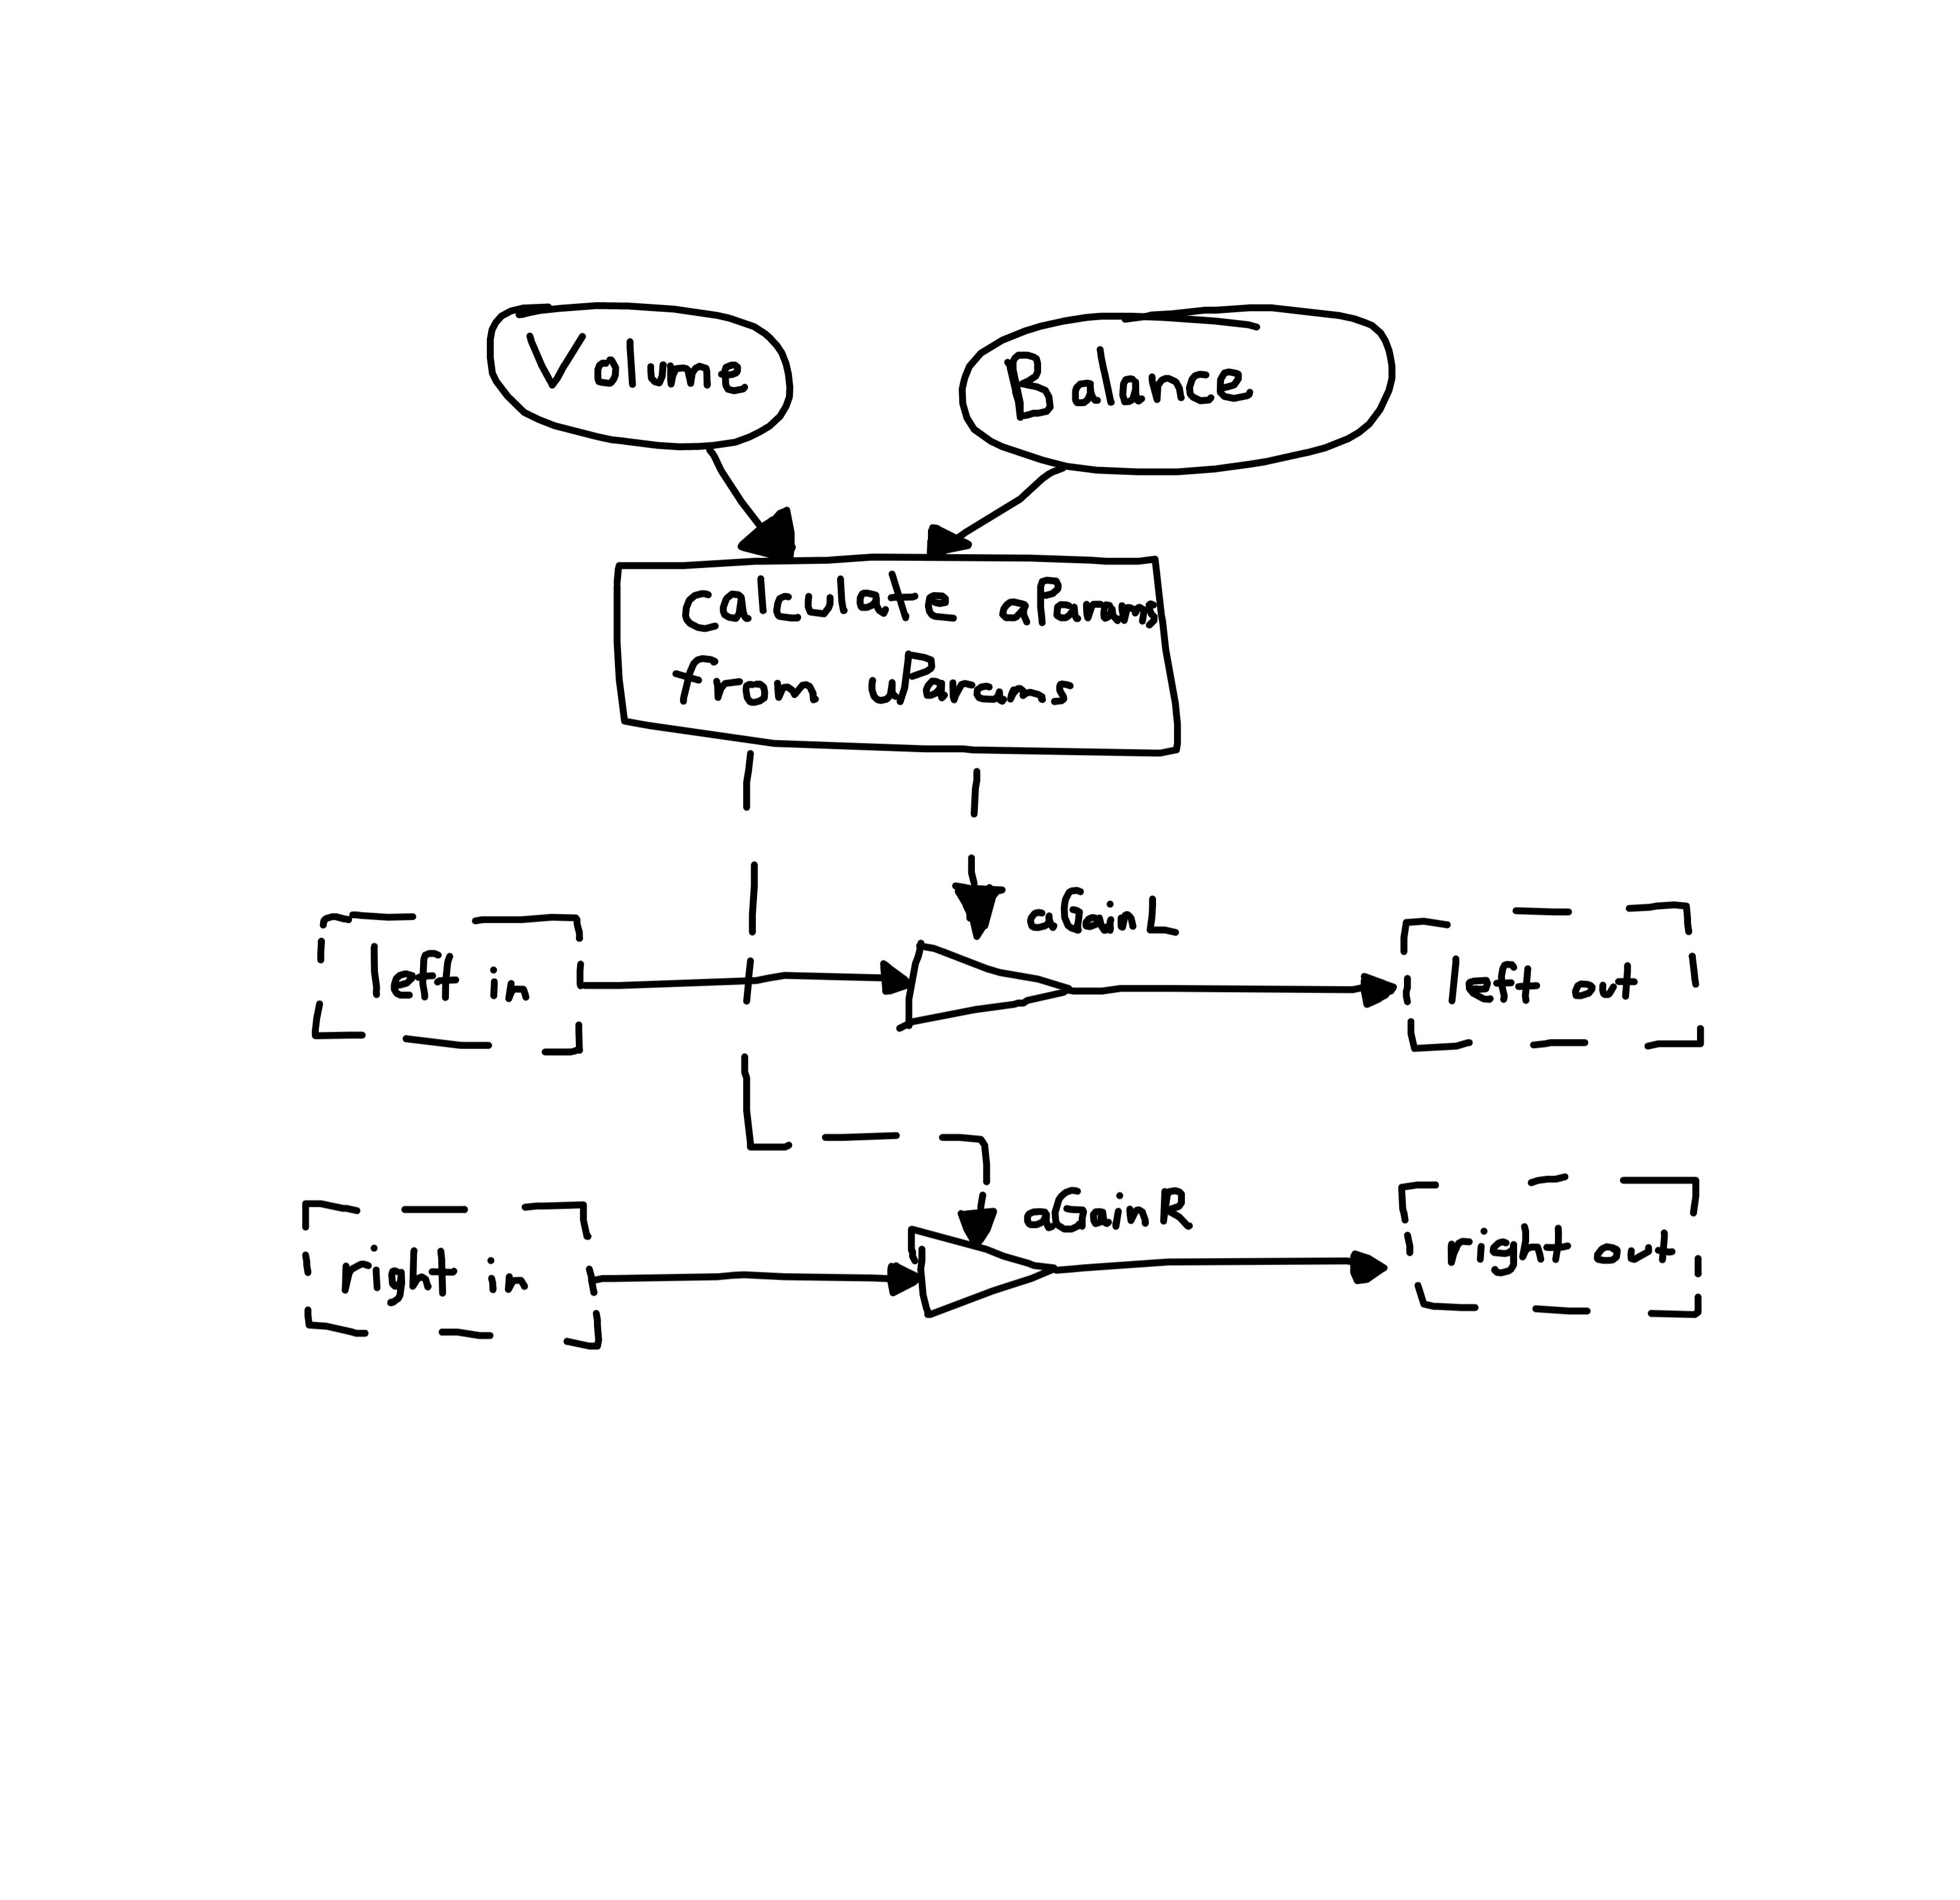 Volume
Balance
Calculate aParams
from uParams
aGainL
left in
left out
aGainR
right in
right out